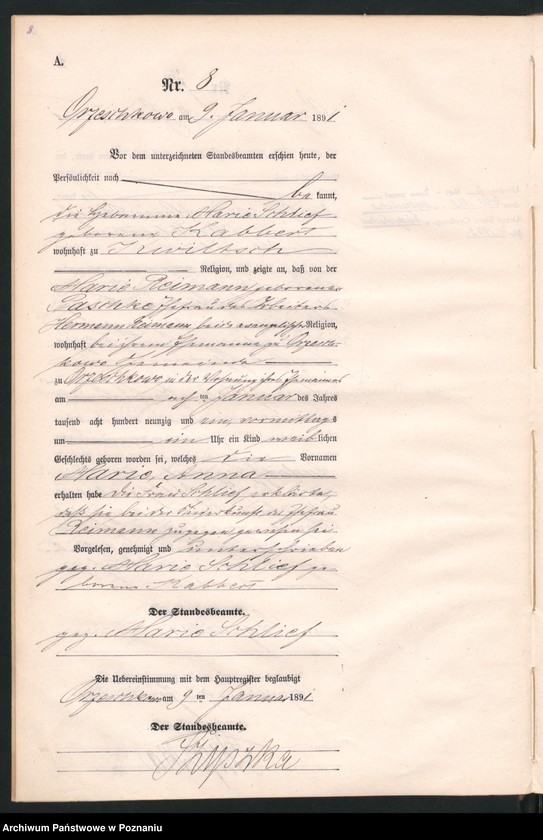 8
A.
Nr. 8
Orzeschkowo am 9. Januar 1891
Vor dem unterzeichneten Standesbeamten erschien heute, der
Persönlichkeit nach
bekannt,
die Hebamme Marie Schlief
geborene Kabbert
wohnhaft zu Kwiltsch
Religion, und zeigte an, daß von der
Marie Reimann geborenen
Paschke Ehefrau des Arbeiters
Hermann Reimann beide evangelischer Religion,
wohnhaft bei ihrem Ehemanne zu Orzesch-
kowo Gemeinde
zu Orzeschkowo in der Wohnung ihres Ehemannes
am ten Januar des Jahres
tausend acht hundert neunzig und ein, vormittags
um ein Uhr ein Kind weiblichen
Geschlechts geboren worden sei, welches die Vornamen
Marie, Anna
erhalten habe die Frau Schlief erklärte,
daß sie bei der Niederkunft der Ehefrau
Reimann zugegen gewesen sei.
Vorgelesen, genehmigt und unterschrieben
gez. Marie Schlief ge-
borene Kabbert
Der Standesbeamte.
gez. Marie Schlief
Die Uebereinstimmung mit dem Hauptregister beglaubigt
Orzeschkowo am 9 ten Januar 1891
Der Standesbeamte.
Archiwum Państwowe w Poznaniu